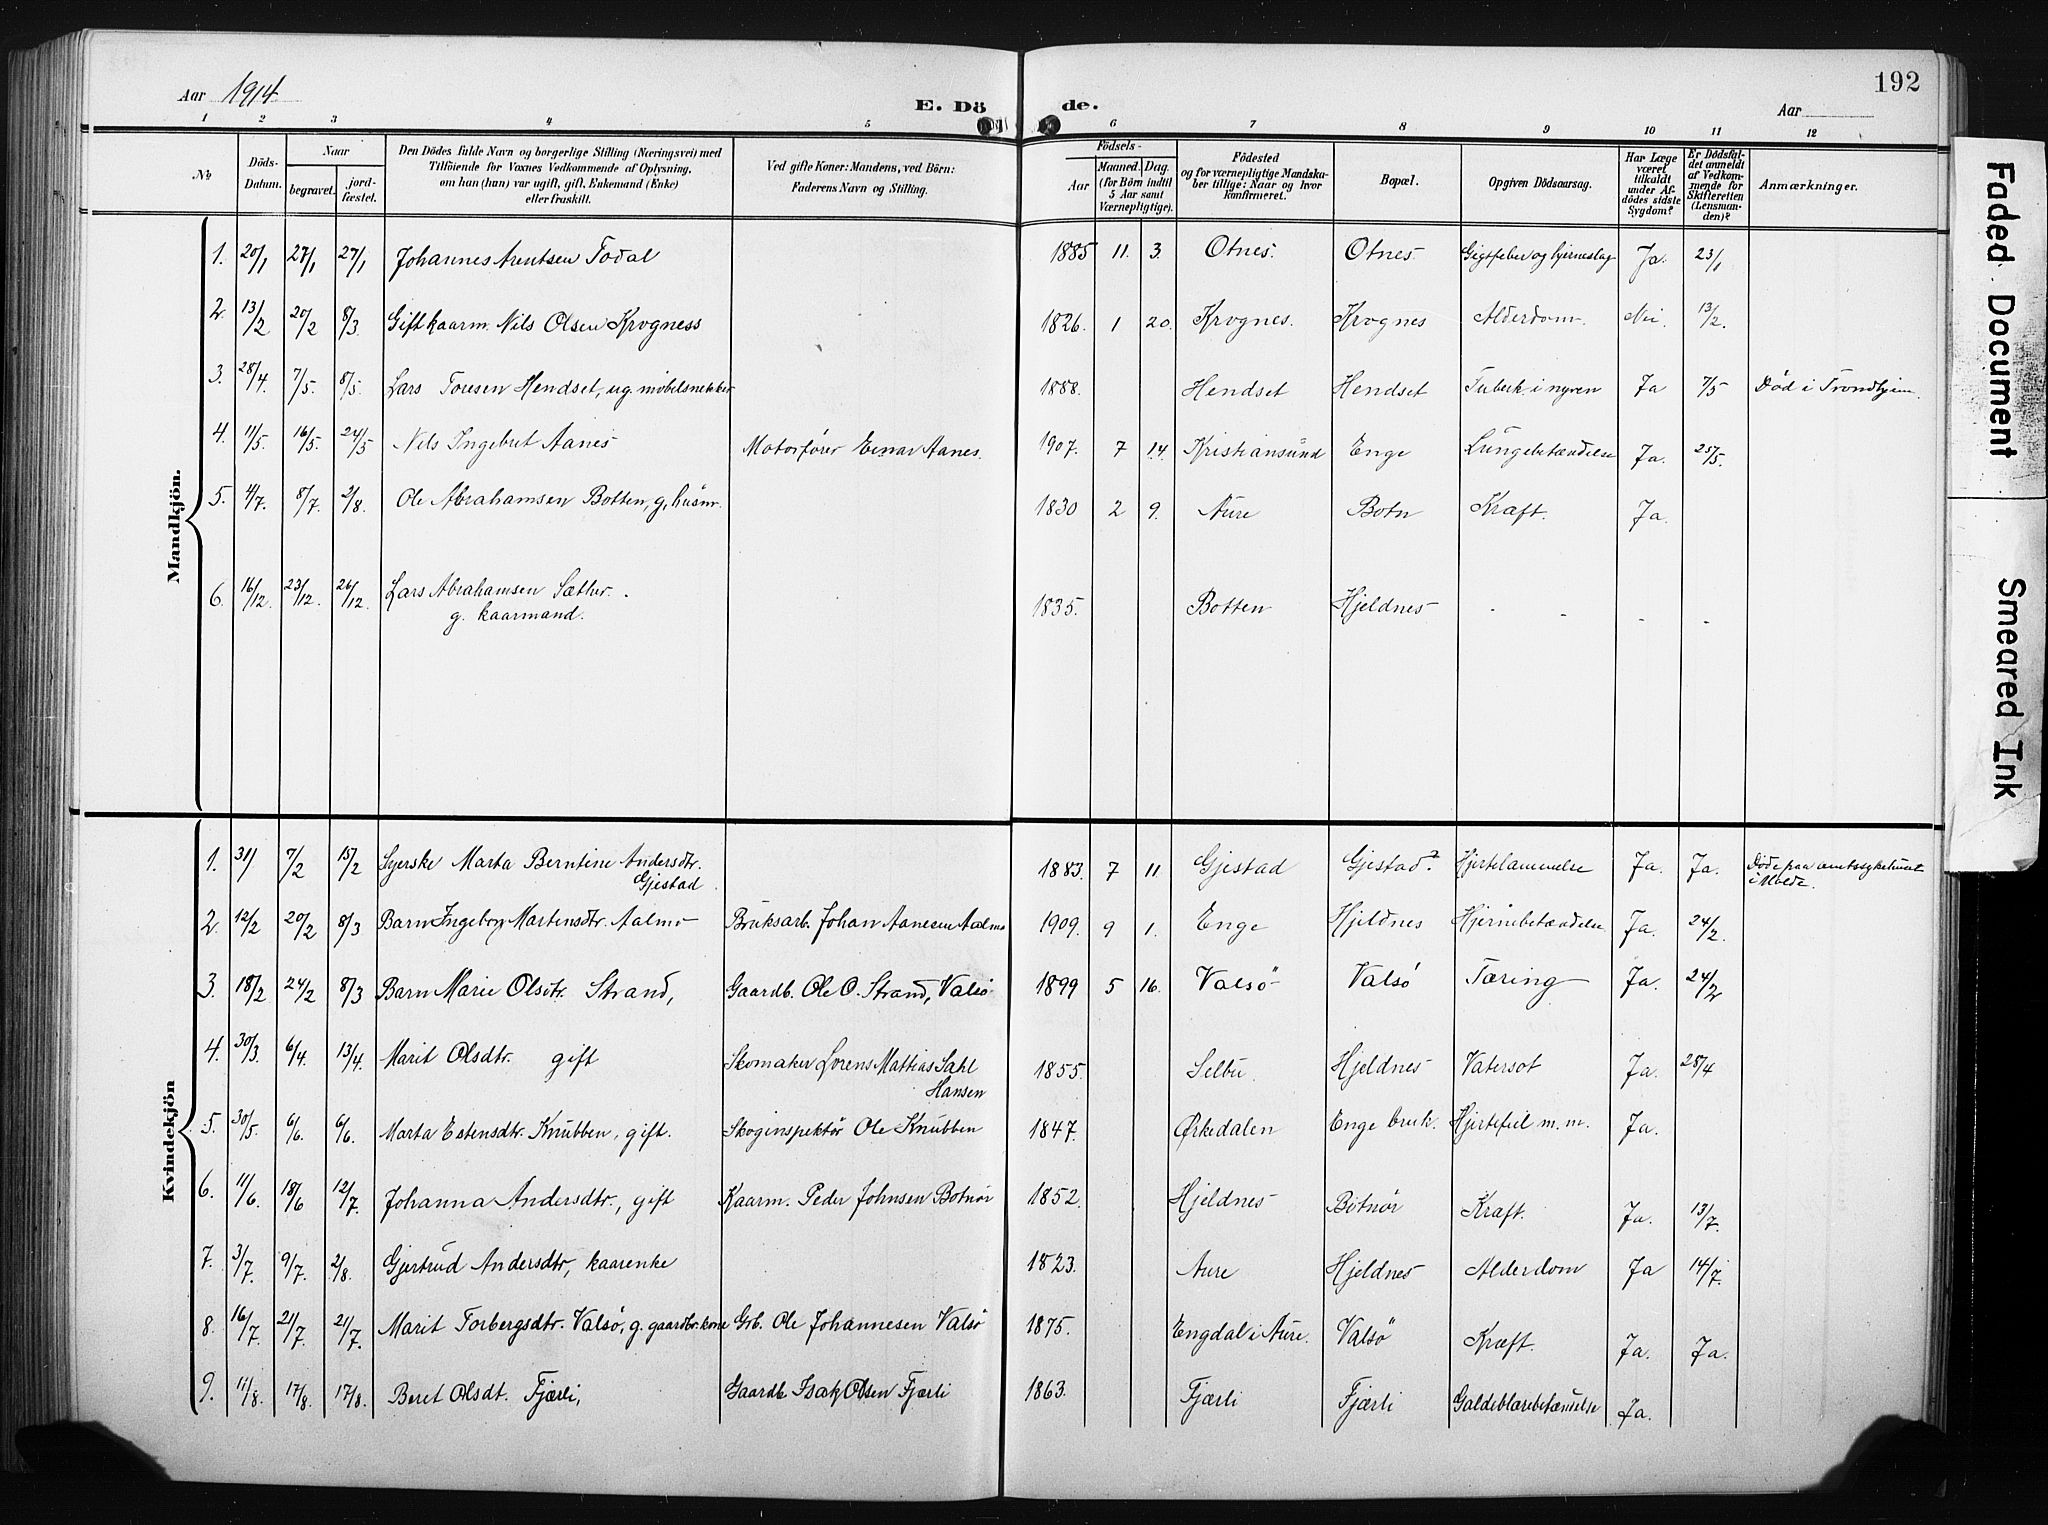 192
Aar 1914
E. Döde.
Aar
1 2 3 4 5 6 7 8 9 10 11 12
No
Döds-Datum.
Naar
begravet.
jord-fæstet.
Den Dödes fulde Navn og borgerlige Stilling (Næringsvei) med
Tilföiende for Voxnes Vedkommende af Oplysning,
om hun (han) var ugift, gift, Enkemand (Enke)
eller fraskilt.
Ved gifte Koner: Mandens, ved Börn:
Faderens Navn og Stilling.
Födsels-
Aar
Maaned. Dag.
(for Börn indtil
5 Aar samt
Værnepligtige).
Födested
og for værnepligtige Mandska-
ber tillige: Naar og hvor
konfirmeret.
Bopæl.
Opgiven Dödsaarsag.
Har Læge
været
tilkaldt
under Af-
dödes sidste
Sygdom?
Er Dödsfal-
det anmeldt
af Vedkom-
mende for
Skifteretten
(Lensman-
den)?
Anmærkninger.
Mandkjön.
1. 20/1 27/1 27/1 Johannes Arentsen Todal 1885 11. 3. Otnes. Otnes. Gigtfeber og hjerneslag Ja. 23/1
2. 13/2 20/2 8/3. Gift kaarm. Nils Olsen Krogness 1826. 1 20. Krognes. Krognes Alderdom. Nei. 13/2.
3. 28/4. 7/5. 8/5. Lars Toresen Hendset, ug. møbelsnekker 1888. Hendset Hendset Tuberk. i nyren Ja 7/5 Død i Trondhjem.
4. 11/5. 16/5. 24/5 Nils Ingebret Aanes Motorfører Einar Aanes. 1907. 7 14. Kristiansund Enge Lungebetændelse Ja. 25/5.
5. 4/7. 8/7. 2/8 Ole Abrahamsen Botten, g, husm. 1830 2 9. Aure Botn Kræft. Ja.
6. 16/12. 23/12. 26/12. Lars Abrahamsen Sæther. 1835. Botten Hjeldnes - - - -
g. kaarmand.
Kvindekjön
1. 31/ 7/2 15/2 Syerske Marta Berntine Andersdtr. 1883. 7 11 Gjestad Gjestad? Hjertelammelse Ja. Ja. Døde paa amtssykehuset
Gjestad i Molde.
2. 12/2 20/2 8/3 Barn Ingeborg Martensdtr. Aalmo Bruksarb. Johan Aanesen Aalmo 1909. 9 1. Enge Hjeldnes Hjernebetændelse Ja. 24/2.
3. 18/2 24/2 8/3 Barn Marie Olsdtr. Strand, Gaardb. Ole O. Strand, Valsø 1899 5 16. Valsö Valsø Tæring Ja. 24/2
4. 30/3. 6/4. 13/4 Marit Olsdtr. gift Skomaker Lorens Mattias Sahl 1855. Selbu. Hjeldnes Vatersot Ja. 28/4
Hansen
5. 30/5 6/6. 6/6. Marta Estensdtr. Knubben, gift. Skoginspektør Ole Knubben 1847. Ørkedalen Enge bruk. Hjertefeil m. m. Ja.
6. 11/6. 18/6 12/7. Johanna Andersdtr., gift Kaarm. Peder Johnsen Botnør 1852. Hjeldnes Botnør Kræft. Ja. 13/7.
7. 3/7. 9/7. 2/8. Gjertrud Andersdtr, kaarenke 1823. Aure Hjeldnes Alderdom Ja 14/7.
8. 16/7 21/7. 21/7. Marit Torbergsdtr. Valsø, g. gaardbr.kone Grb. Ole Johannesen Valsø 1875. Engdal i Aure. Valsø Kræft. Ja. Ja.
9. 11/8. 17/8. 17/8. Beret Olsdt. Fjærli, Gaardb. Isak Olsen Fjærli 1863. Fjærli Fjærli Galdeblærebetændelse Ja.
Faded Document
Smeared Ink